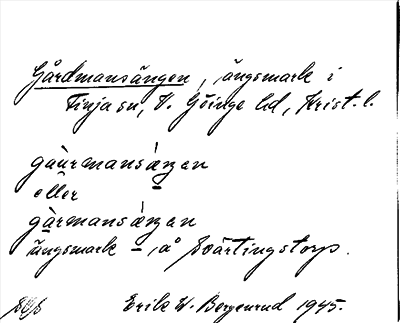 Gårdmansängen, ängsmark i
Finja sn, V. Göinge hd, Krist. l.
gàurmansáŋen
eller
gàrmansáŋen
ängsmark – , å Svärtingstorp.
Erik W. Bergenrud 1945.